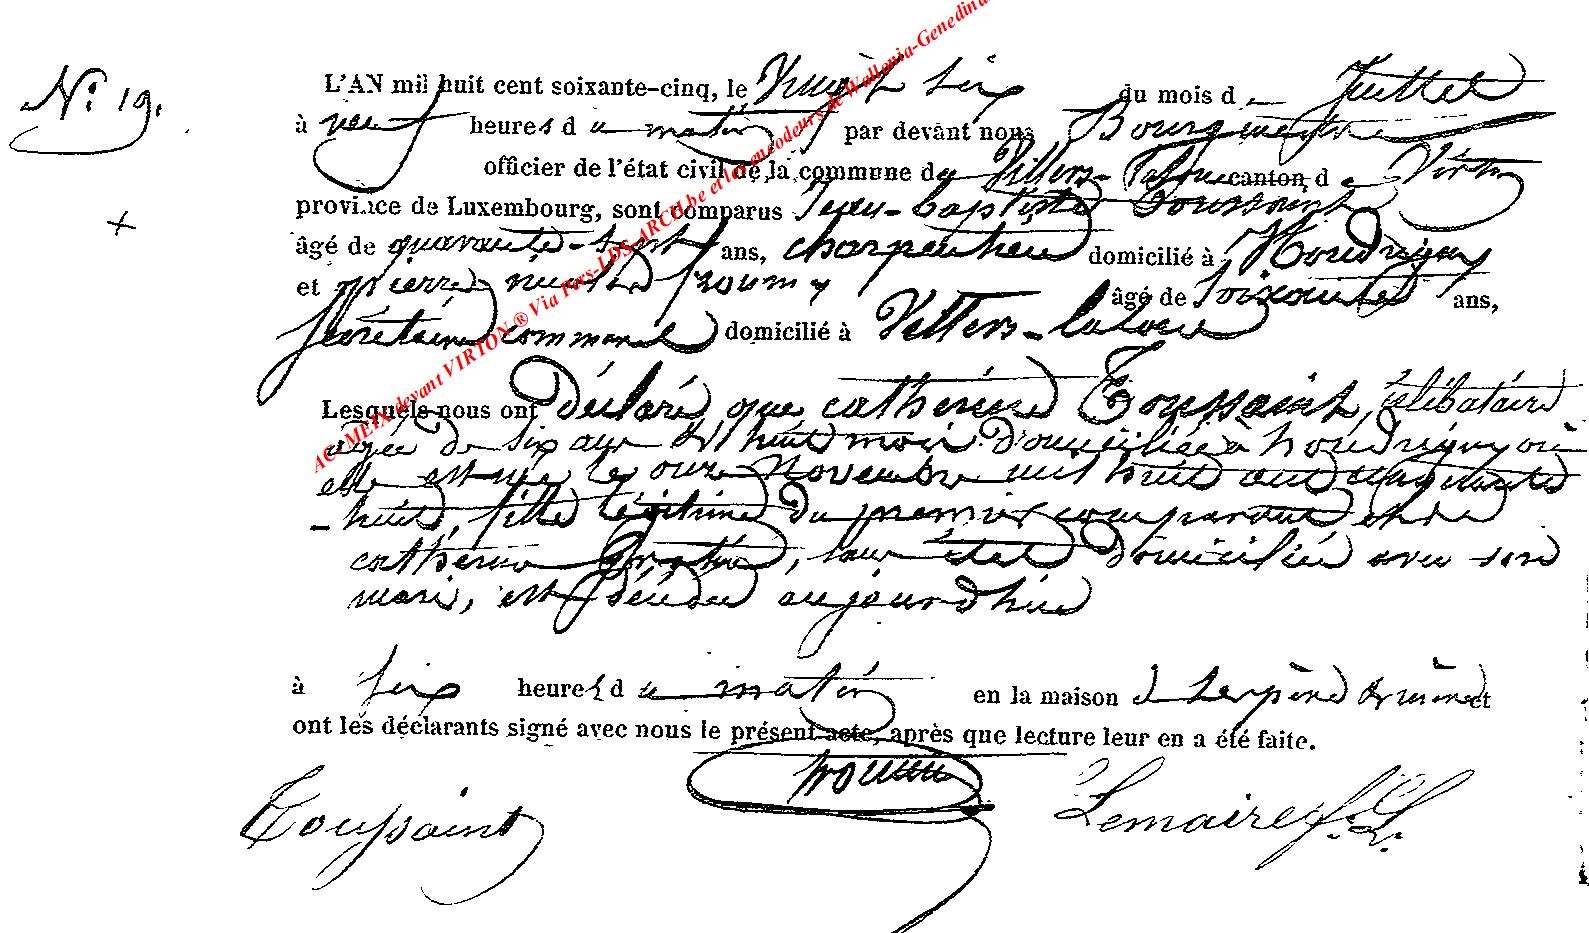 N.° 19.
L'AN mil huit cent soixante-cinq, le Vingt six du mois d Juillet
à neuf heures du matin par devant nous Bourgmestre
officier de l'état civil de la commune de Villers-laloue canton de Virton
province de Luxembourg, sont comparus Jean-baptiste Toussaint
âgé de quarante-sept ans, charpentier domicilié à Houdrigny
et pierre nicolas âgé de soixante ans,
Secrétaire communal domicilié à Villers-laloue
Lesquels nous ont déclaré que catherine Toussaint, célibataire
agée de six ans et huit mois domiciliée à houdrigny où
elle est née le onze Novembre mil huit cent cinquante
-huit, fille légitime du premier comparant et de
catherine, sans état domiciliée avec son
mari, est décédée aujourd'hui
à six heures du matin en la maison de ses père et mère et
ont les déclarants signé avec nous le présent acte, après que lecture leur en a été faite.
Toussaint Lemaire f. L.
AC MEIX devant VIRTON ® Via Fms-LDS-ARCH.be et les encodeurs de Wallonia-Genedinu